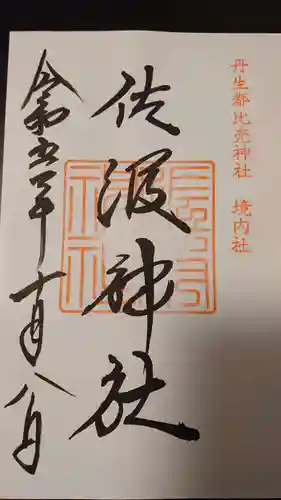 丹生都比売神社 境内社
佐波神社
令和五年十月八日